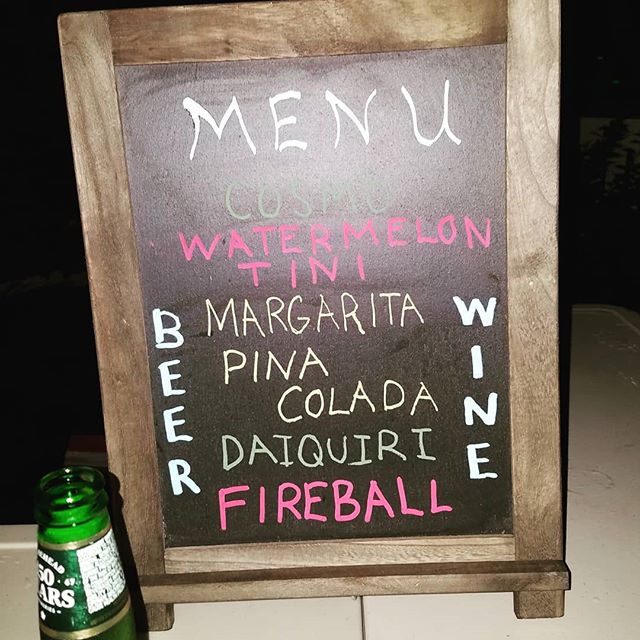 MENU
COSMO
WATERMELON
TINI
MARGARITA
PINA
COLADA
DAIQUIRI
FIREBALL
BEER
WINE
50